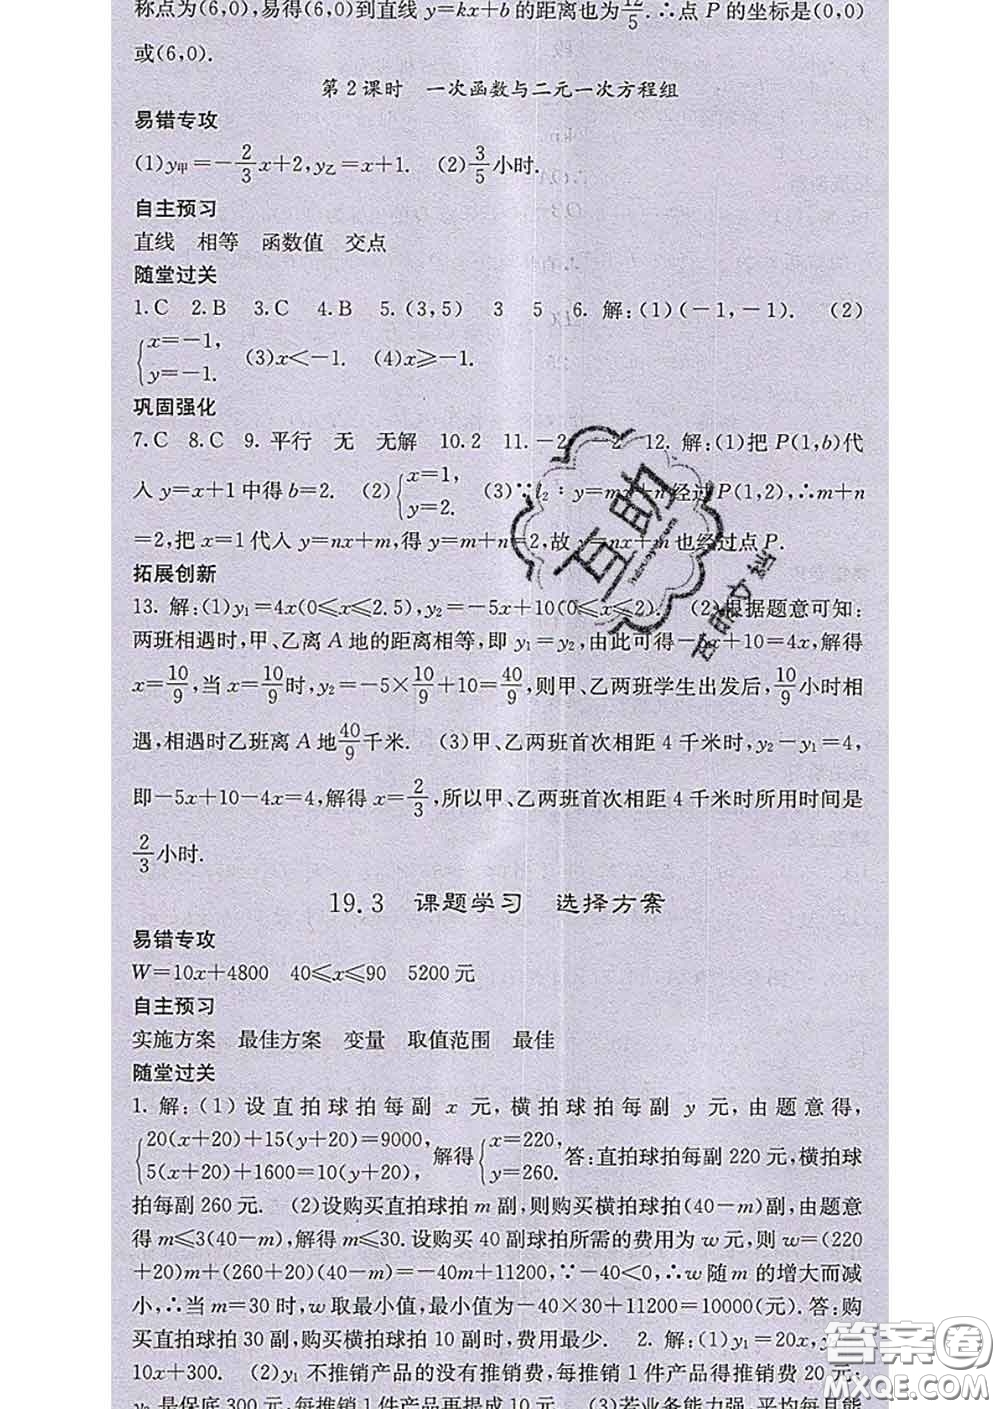 称点为(6,0),易得(6,0)到直线 y=kx+b 的距离也为12/5.∴点 P 的坐标是(0,0)
或(6,0).
第2课时 一次函数与二元一次方程组
易错专攻
(1)y甲=-2/3x+2,y乙=x+1. (2)3/5小时.
自主预习
直线 相等 函数值 交点
随堂过关
1.C 2.B 3.C 4.B 5.(3,5) 3 5 6.解:(1)(-1,-1). (2)
{x=-1, y=-1. (3)x<-1. (4)x≥-1.
巩固强化
7.C 8.C 9.平行 无 无解 10.2 11.-2 -2 12.解:(1)把 P(1,b)代
入 y=x+1 中得 b=2. (2){x=1, y=2. (3)∵l₂:y=mx+n 经过 P(1,2),∴m+n
=2,把 x=1 代入 y=nx+m,得 y=m+n=2,故 y=nx+m 也经过点 P.
拓展创新
13.解:(1)y₁=4x(0≤x≤2.5),y₂=-5x+10(0≤x≤2). (2)根据题意可知:
两班相遇时,甲、乙离 A 地的距离相等,即 y₁=y₂,由此可得-5x+10=4x,解得
x=10/9,当 x=10/9时,y₂=-5×10/9+10=40/9,则甲、乙两班学生出发后,10/9小时相
遇,相遇时乙班离 A 地40/9千米. (3)甲、乙两班首次相距 4 千米时,y₂-y₁=4,
即-5x+10-4x=4,解得 x=2/3,所以甲、乙两班首次相距 4 千米时所用时间是
2/3小时.
19.3 课题学习 选择方案
易错专攻
W=10x+4800 40≤x≤90 5200 元
自主预习
实施方案 最佳方案 变量 取值范围 最佳
随堂过关
1.解:(1)设直拍球拍每副 x 元,横拍球拍每副 y 元,由题意得,
{20(x+20)+15(y+20)=9000, 5(x+20)+1600=10(y+20), 解得{x=220, y=260. 答:直拍球拍每副 220 元,横拍球
拍每副 260 元. (2)设购买直拍球拍 m 副,则购买横拍球拍(40-m)副,由题意
得 m≤3(40-m),解得 m≤30.设购买 40 副球拍所需的费用为 w 元,则 w=(220
+20)m+(260+20)(40-m)=-40m+11200,∵-40<0,∴w 随 m 的增大而减
小,∴当 m=30 时,w 取最小值,最小值为-40×30+11200=10000(元).答:购
买直拍球拍 30 副,购买横拍球拍 10 副时,费用最少. 2.解:(1)y₁=20x,y₂=
10x+300. (2)y₁ 不推销产品的没有推销费,每推销 1 件产品得推销费 20 元;
y₂ 是保底 300 元,每推销 1 件产品再提成 10 元. (3)若业务能力强,平均每月能
互助
答案圈
MXQE.COM